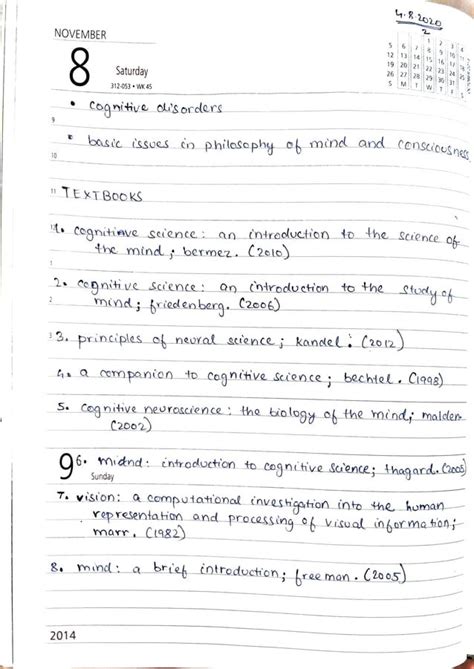 4.8.2020
2
NOVEMBER
8
Saturday
312-053 • WK 45
• cognitive disorders
9
• basic issues in philosophy of mind and consciousness
10
11 TEXTBOOKS
1. cognitive science: an introduction to the science of
the mind; bermez. (2010)
1
2. cognitive science: an introduction to the study of
2 mind; friedenberg. (2006)
3 3. principles of neural science; kandel. (2012)
4. a companion to cognitive science; bechtel. (1998)
5. cognitive neuroscience: the biology of the mind; malden
(2002)
9 6. mind: introduction to cognitive science; thagard. (2005)
Sunday
7. vision: a computational investigation into the human
representation and processing of visual information;
marr. (1982)
8. mind: a brief introduction; freeman. (2005)
2014